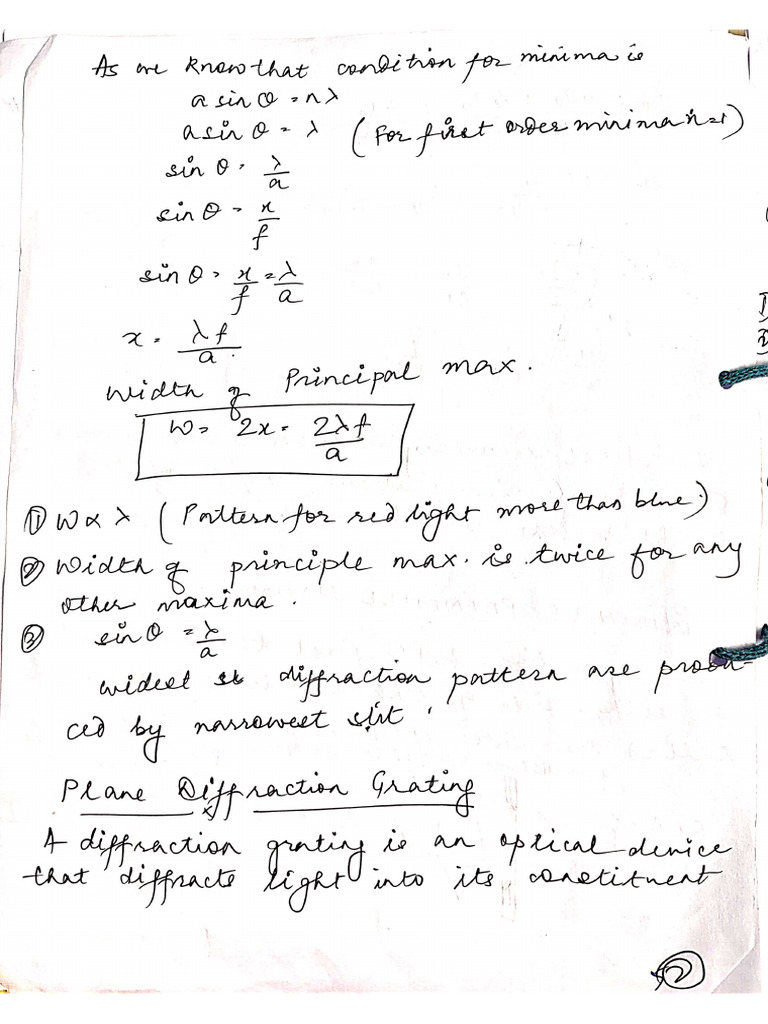 As we know that condition for minima is
a sin θ = nλ
a sin θ = λ (For first order minima n=1)
sin θ = λ/a
sin θ = x/f
sin θ = x/f = λ/a
x = λf/a.
Width of Principal max.
W = 2x = 2λf/a
① W ∝ λ (Pattern for red light more than blue.)
② Width of principle max. is twice for any
other maxima.
③ sin θ = λ/a
widest diffraction pattern are produ-
ced by narrowest slit.
Plane Diffraction Grating
A diffraction grating is an optical device
that diffracts light into its constituent
②